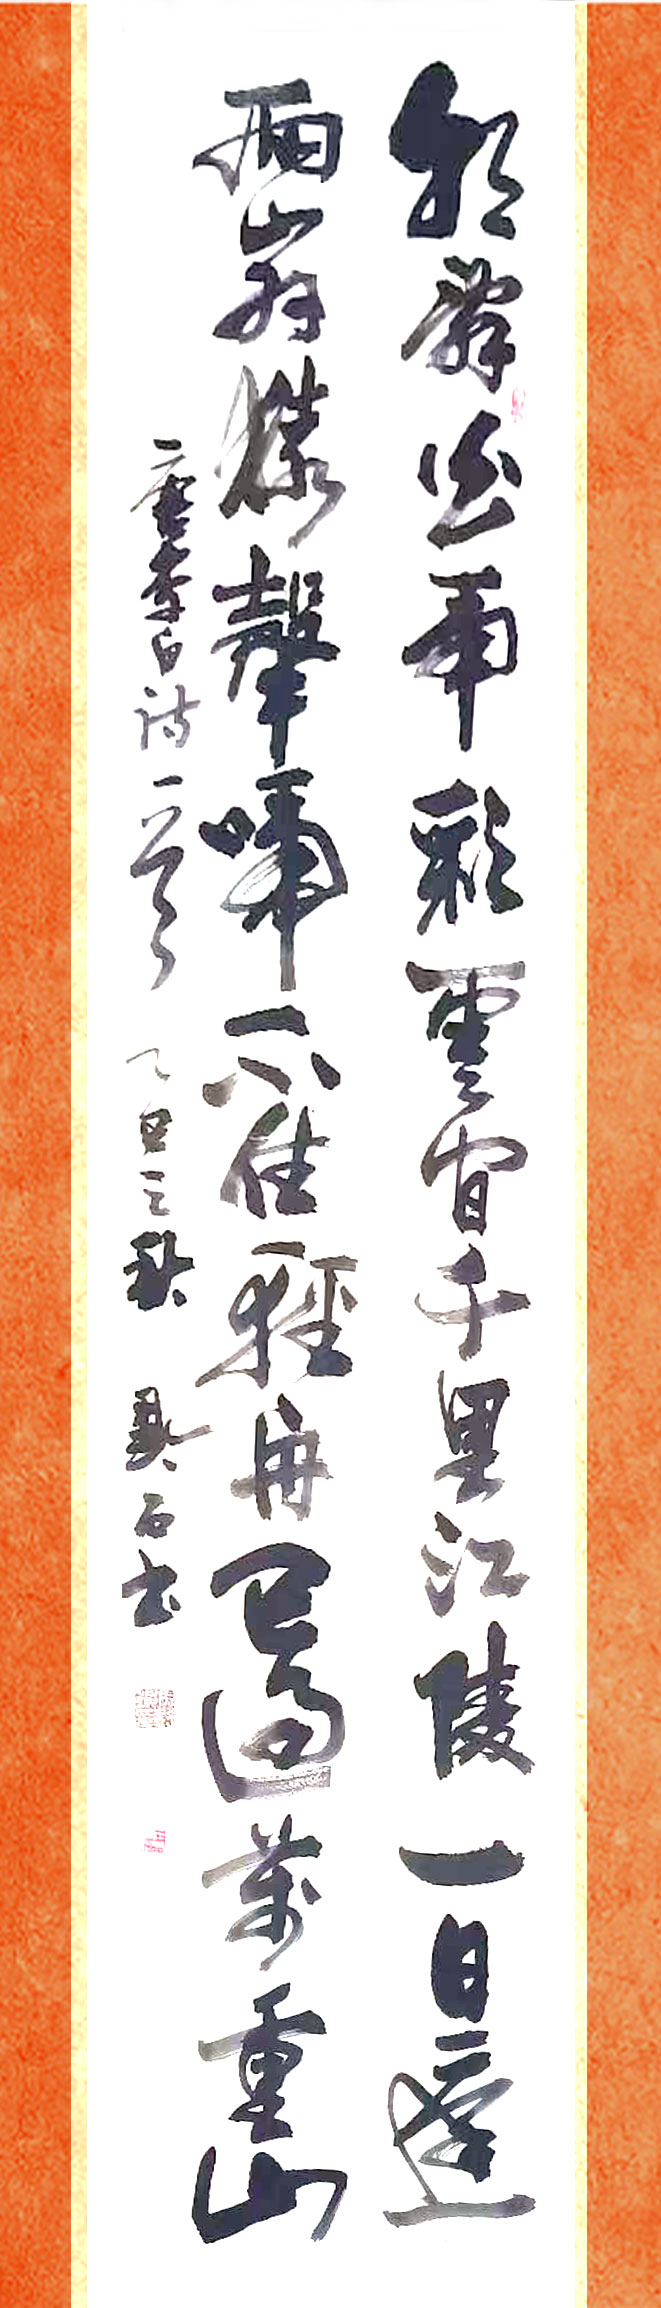 朝辭白帝彩雲间千里江陵一日還
兩岸猿聲啼不住輕舟已過萬重山
唐李白诗一首 乙巳之秋 石书